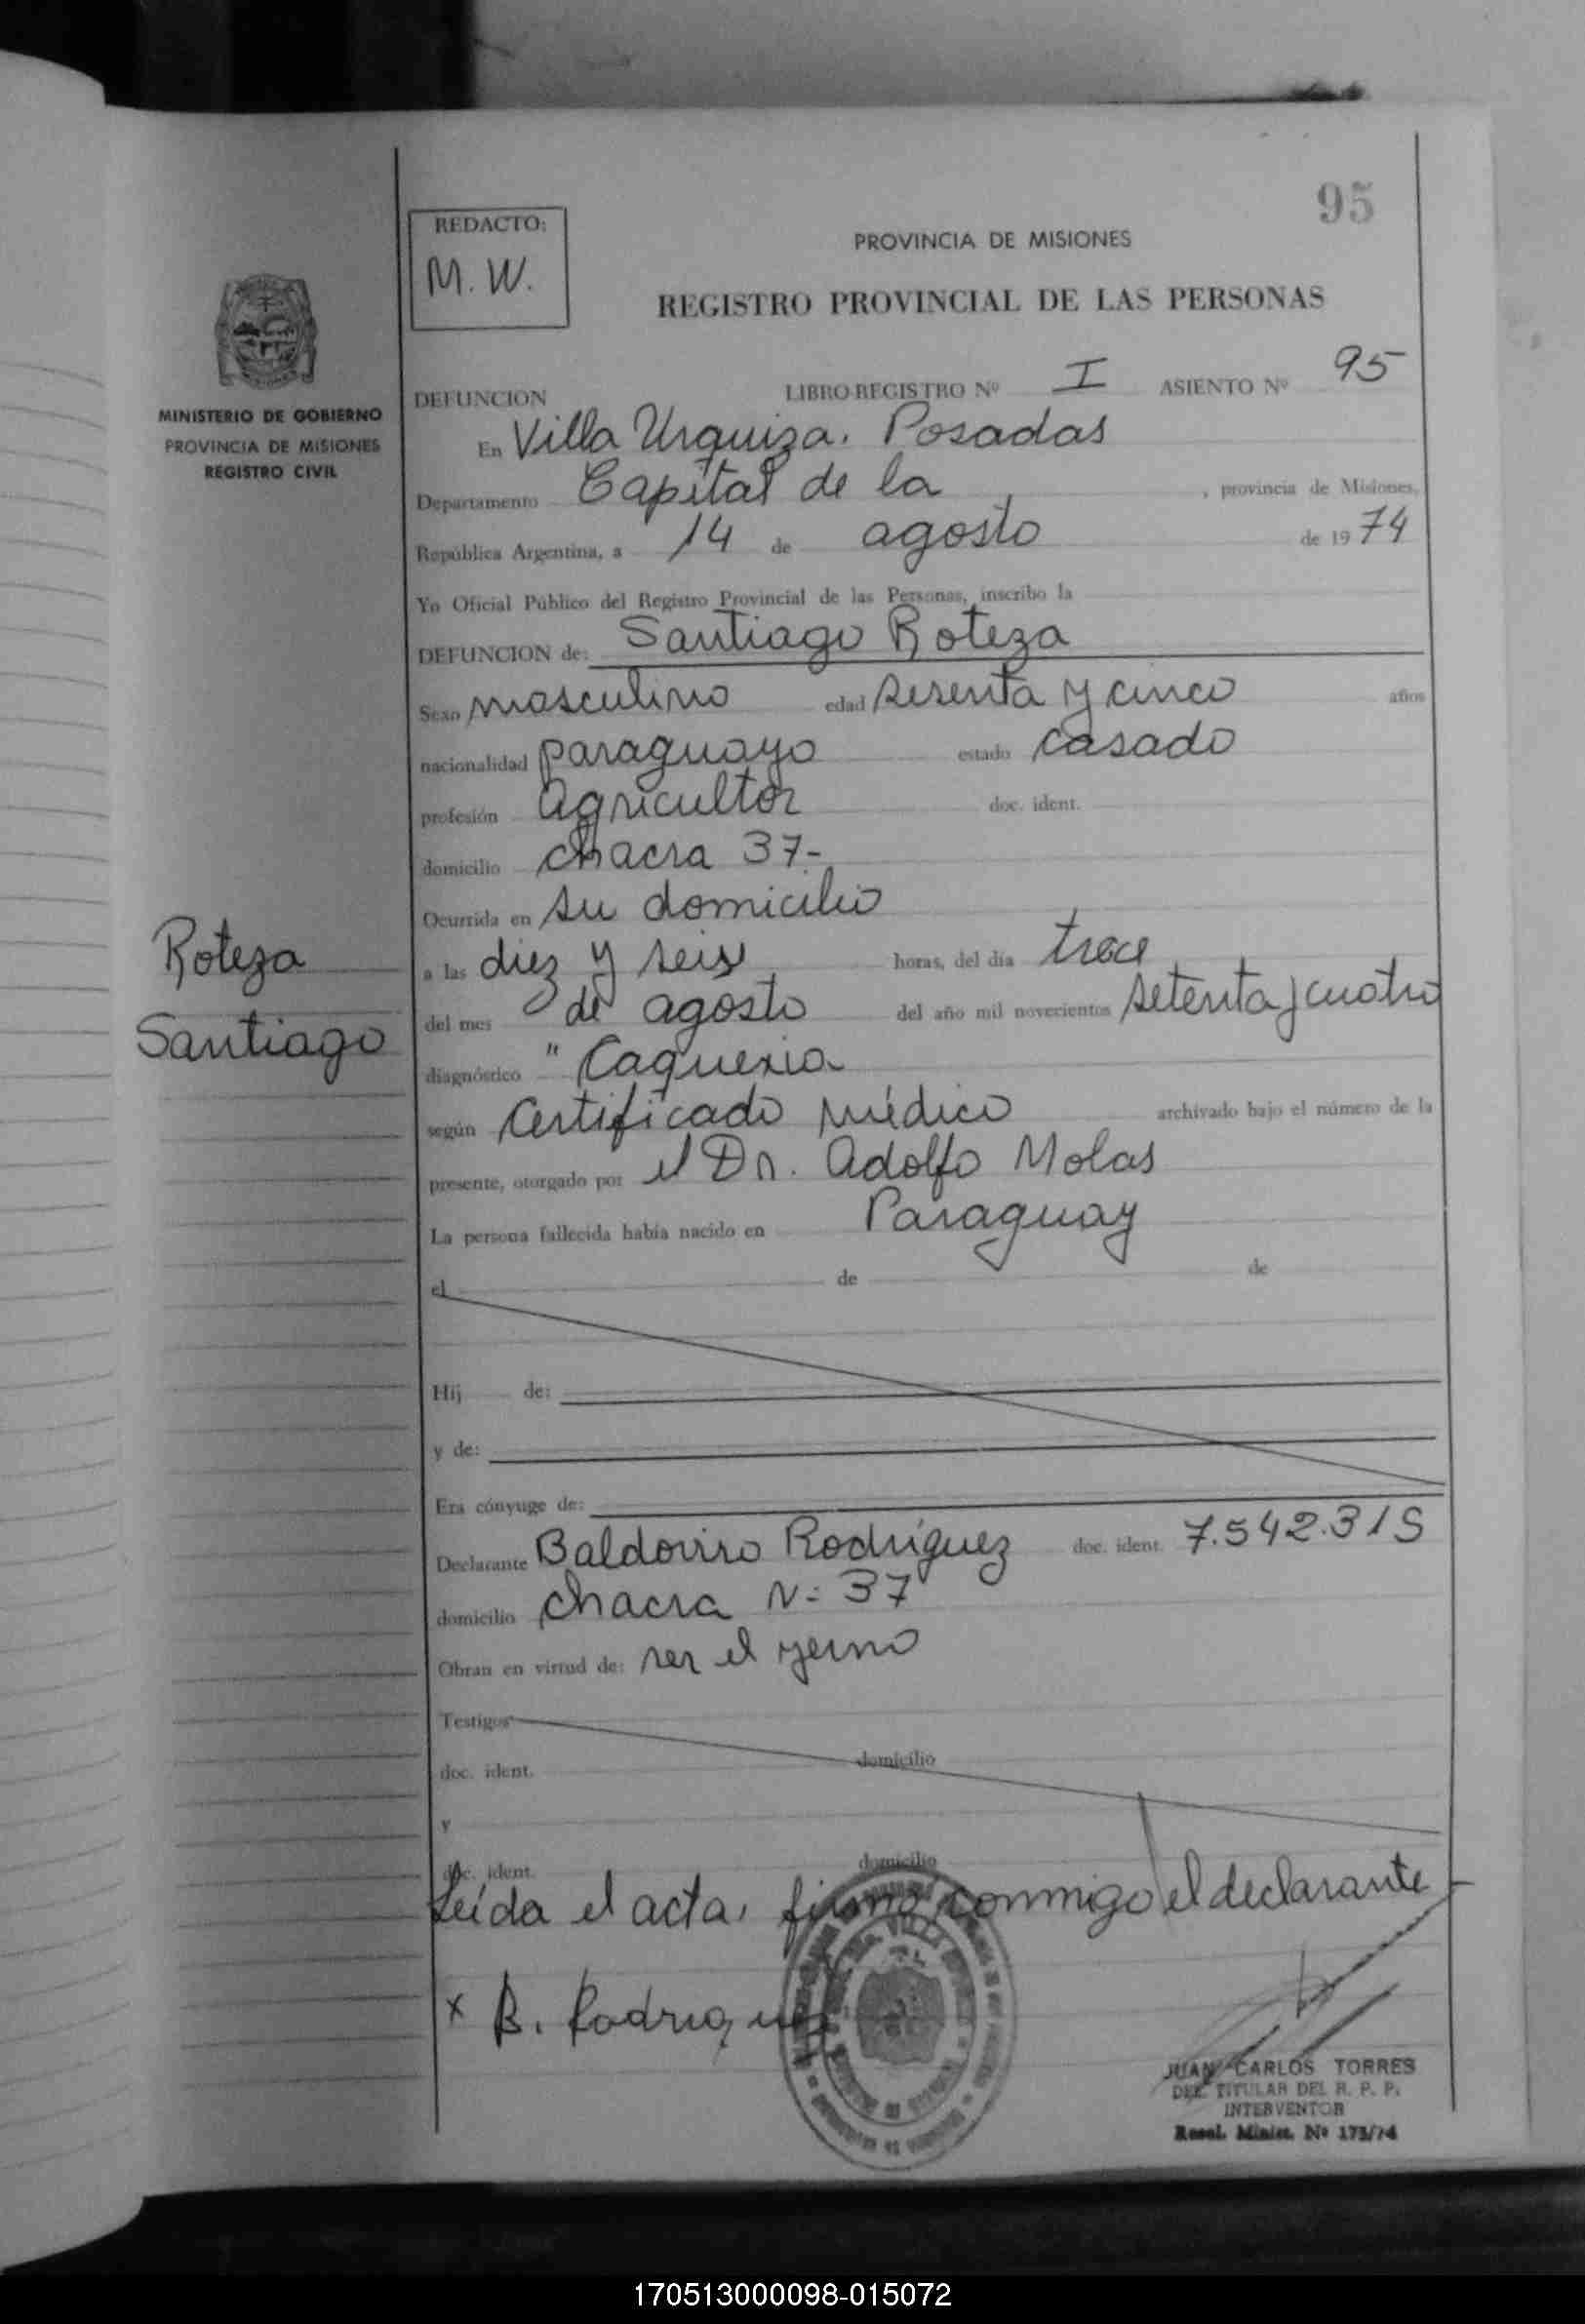 95
REDACTO:
M. W.
PROVINCIA DE MISIONES
REGISTRO PROVINCIAL DE LAS PERSONAS
MINISTERIO DE GOBIERNO
PROVINCIA DE MISIONES
REGISTRO CIVIL
DEFUNCION LIBRO REGISTRO Nº I ASIENTO Nº 95
En Villa Urquiza. Posadas
Departamento Capital de la, provincia de Misiones,
República Argentina, a 14 de agosto de 1974
Yo Oficial Público del Registro Provincial de las Personas, inscribo la
DEFUNCION de: Santiago Roteza
Sexo masculino edad sesenta y cinco años
nacionalidad paraguayo estado casado
profesión agricultor doc. ident.
domicilio chacra 37-
Ocurrida en su domicilio
a las diez y seis horas, del día trece
del mes de agosto del año mil novecientos setenta y cuatro
diagnóstico " Caquexia
según certificado médico archivado bajo el número de la
presente, otorgado por el Dr. Adolfo Molas
La persona fallecida había nacido en Paraguay
el de de
Hij de:
y de:
Era cónyuge de:
Declarante Baldovino Rodríguez doc. ident. 7.542.315
domicilio chacra N: 37
Obran en virtud de: ser el yerno
Testigos
doc. ident. domicilio
y
doc. ident. domicilio
Leída el acta, firma conmigo el declarante
x B. Rodriguez
Roteza
Santiago
JUAN CARLOS TORRES
DEL. TITULAR DEL R. P. P.
INTERVENTOR
Resol. Minist. Nº 173/74
170513000098-015072